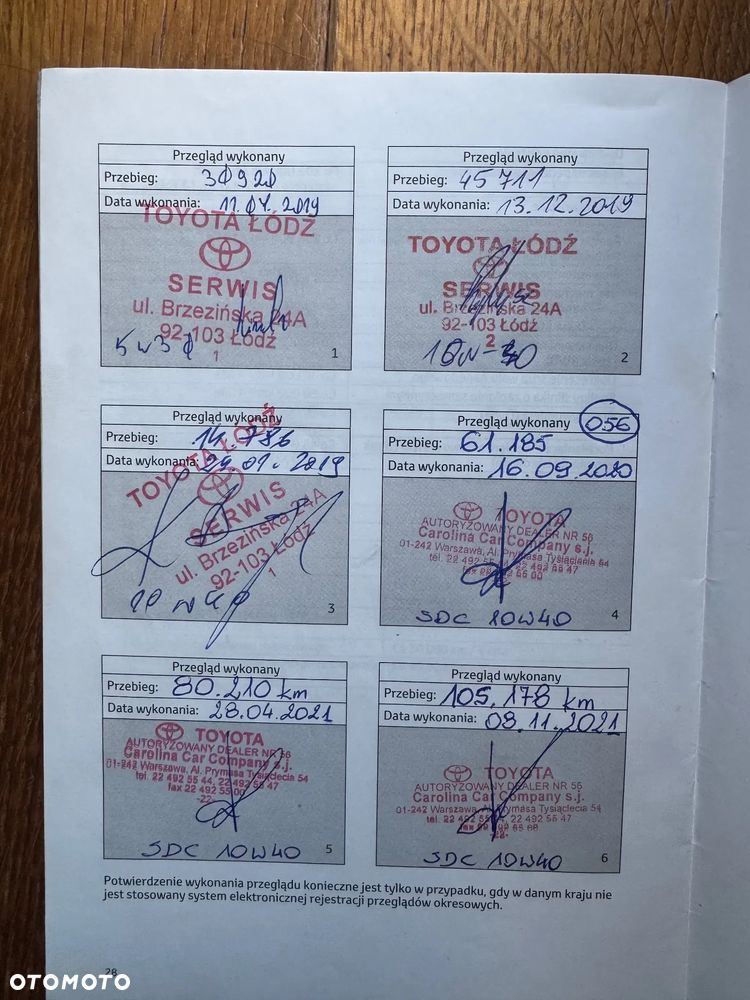 Przegląd wykonany
Przebieg: 30920
Data wykonania: 11.04.2019
TOYOTA ŁÓDŹ
SERWIS
ul. Brzezińska 24A
92-103 Łódź
1
5W30
1
Przegląd wykonany
Przebieg: 45711
Data wykonania: 13.12.2019
TOYOTA ŁÓDŹ
SERWIS
ul. Brzezińska 24A
92-103 Łódź
2
2
Przegląd wykonany
Przebieg: 14.786
Data wykonania:
TOYOTA ŁÓDŹ
SERWIS
ul. Brzezińska 24A
92-103 Łódź
1
10W40
3
Przegląd wykonany 056
Przebieg: 61.185
Data wykonania: 16.09.2020
TOYOTA
AUTORYZOWANY DEALER NR 56
Carolina Car Company s.j.
01-242 Warszawa, Al. Prymasa Tysiąclecia 54
tel. 22 492 55 44, 22 492 55 47
fax 22 492 55 00
SDC 10W40
4
Przegląd wykonany
Przebieg: 80.210 km
Data wykonania: 28.04.2021
TOYOTA
AUTORYZOWANY DEALER NR 56
Carolina Car Company s.j.
01-242 Warszawa, Al. Prymasa Tysiąclecia 54
tel. 22 492 55 44, 22 492 55 47
fax 22 492 55 00
-22-
SDC 10W40
5
Przegląd wykonany
Przebieg: 105.178 km
Data wykonania: 08.11.2021
TOYOTA
AUTORYZOWANY DEALER NR 56
Carolina Car Company s.j.
01-242 Warszawa, Al. Prymasa Tysiąclecia 54
tel. 22 492 55 44, 22 492 55 47
fax 22 492 55 00
SDC 10W40
6
Potwierdzenie wykonania przeglądu konieczne jest tylko w przypadku, gdy w danym kraju nie
jest stosowany system elektronicznej rejestracji przeglądów okresowych.
28
OTOMOTO